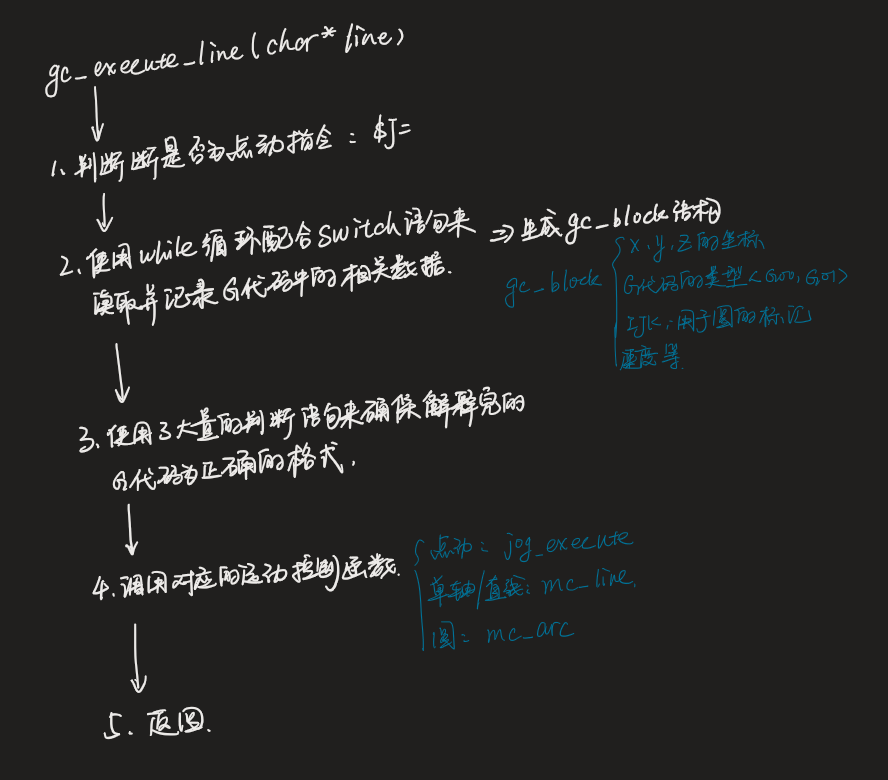 gc_execute_line(char* line)
1、判断断是否为点动指令：$J=
2、使用while循环配合switch语句来 ⇒ 生成gc_block结构
读取并记录G代码中的相关数据.
gc_block
x.y.z的坐标
G代码的类型<G00, G01>
IJK:用于圆的标记
速度等.
3、使用了大量的判断语句来确保解释完的
G代码为正确的格式.
4.调用对应的运动控制函数.
点动: jog_execute
单轴/直线: mc_line,
圆: mc_arc
5. 返回.